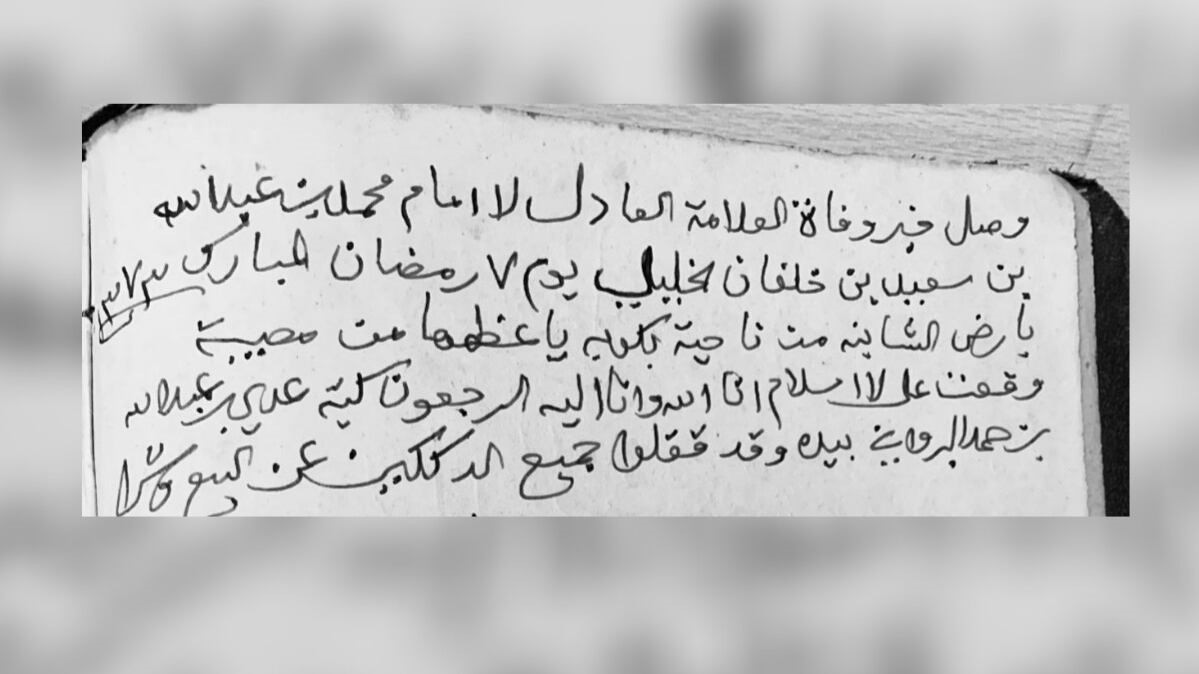 وصل خبر وفاة العلامة العادل لاامام محمد بن عبدالله
بن سعيد بن خلفان لخليلي يوم ٧ رمضان المبارك ١٣٧٣
بارض الشاينه من ناحية بكوبه ياعظمها من مصيبة
وقعت على لااسلام انا لله وانا اليه الرجعون كتبه عدي بن عبدالله
بن حمد البرواني بيده وقد قفلوا جميع الدككين عن البيع وشرا